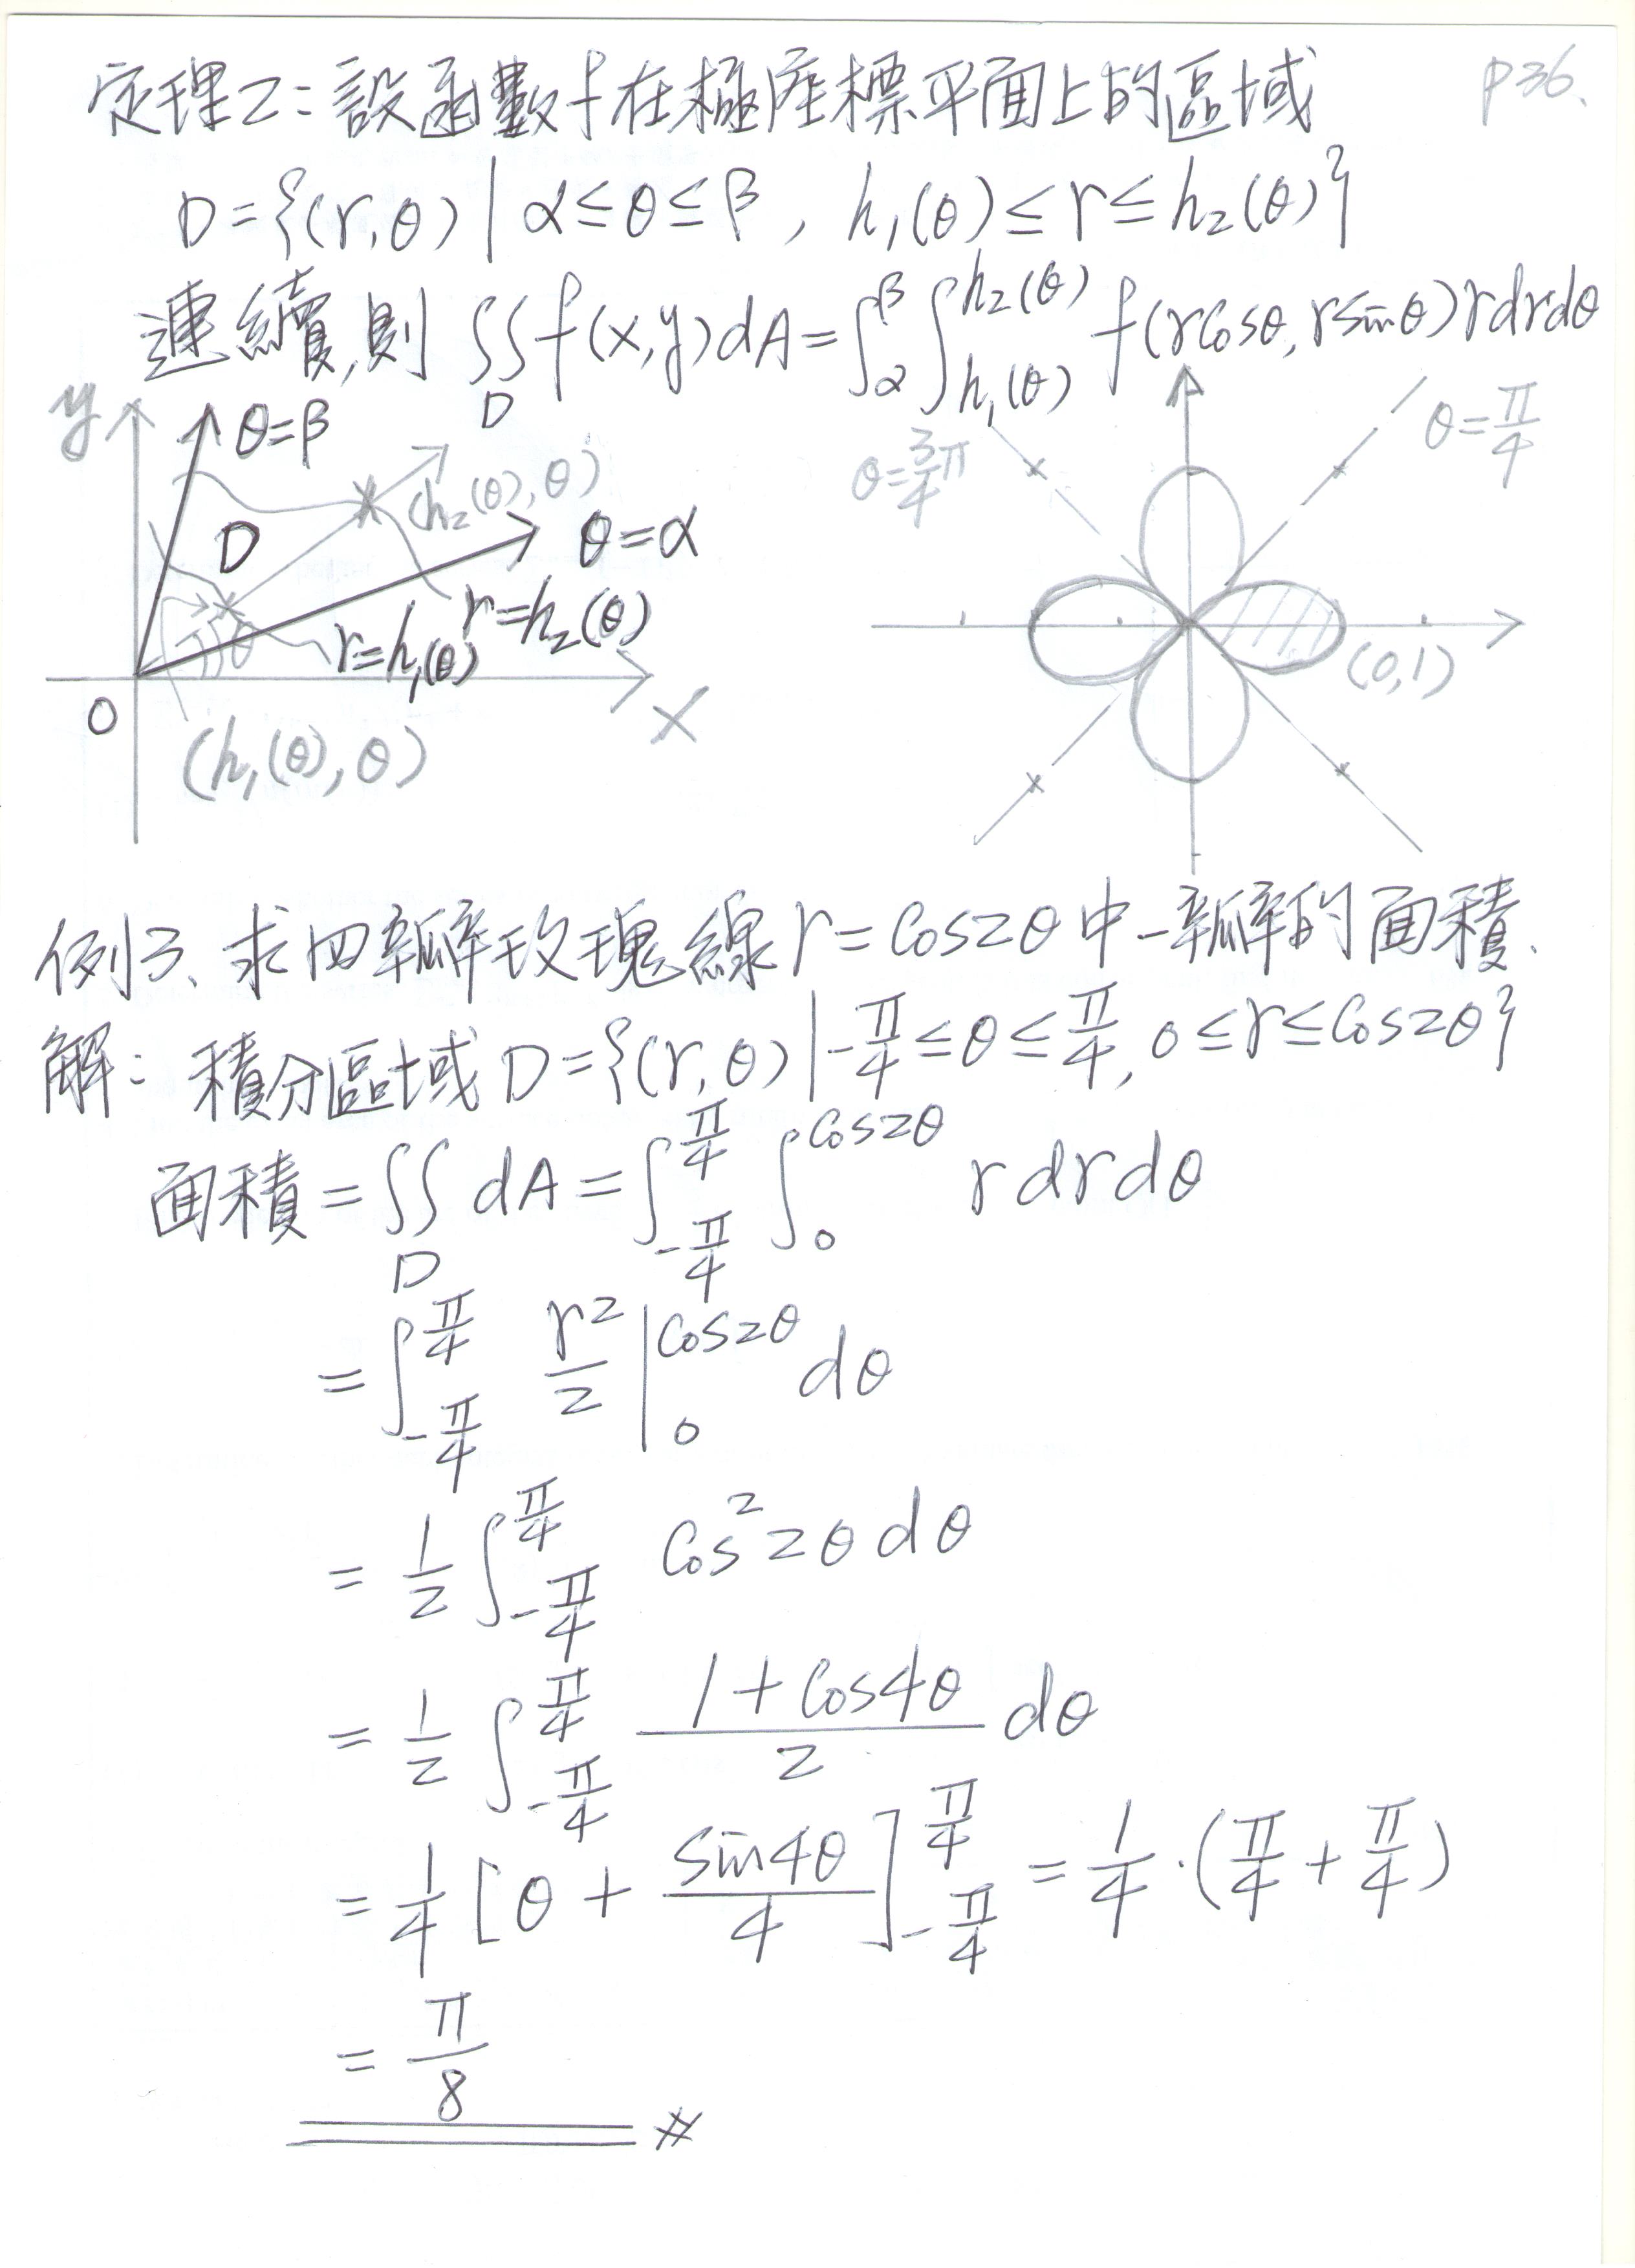 p36.
定理2:設函數f在極座標平面上的區域
D={(r,θ)|α≤θ≤β, h₁(θ)≤r≤h₂(θ)}
連續,則 ∬_D f(x,y)dA=∫_α^β ∫_{h₁(θ)}^{h₂(θ)} f(rcosθ,rsinθ)rdrdθ
y
θ=β
(h₂(θ),θ)
D
θ=α
r=h₂(θ)
r=h₁(θ)
θ
O
x
(h₁(θ),θ)
θ=3/4π
θ=π/4
(0,1)
例3、求四瓣玫瑰線r=cos2θ中一瓣的面積.
解:積分區域D={(r,θ)|-π/4≤θ≤π/4, 0≤r≤cos2θ}
面積=∬_D dA=∫_{-π/4}^{π/4} ∫_0^{cos2θ} rdrdθ
=∫_{-π/4}^{π/4} r²/2 |_0^{cos2θ} dθ
=1/2 ∫_{-π/4}^{π/4} cos²2θdθ
=1/2 ∫_{-π/4}^{π/4} (1+cos4θ)/2 dθ
=1/4[θ+sin4θ/4]_{-π/4}^{π/4}=1/4·(π/4+π/4)
=π/8